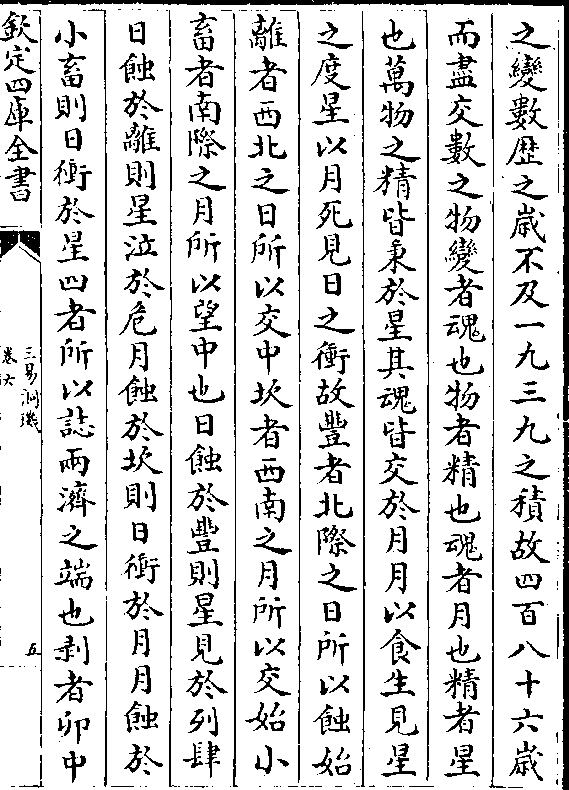 之變數歴之歳不及一九三九之積故四百八十六歳
而盡交數之物變者魂也物者精也魂者月也精者星
也萬物之精皆秉於星其魂皆交於月月以食生見星
之度星以月死見日之衝故豐者北際之日所以蝕始
離者西北之日所以交中坎者西南之月所以交始小
畜者南際之月所以望中也日蝕於豐則星見於列肆
日蝕於離則星泣於危月蝕於坎則日衝於月月蝕於
小畜則日衝於星四者所以誌兩濟之端也剥者卯中
欽定四庫全書
三易洞璣
卷六
五